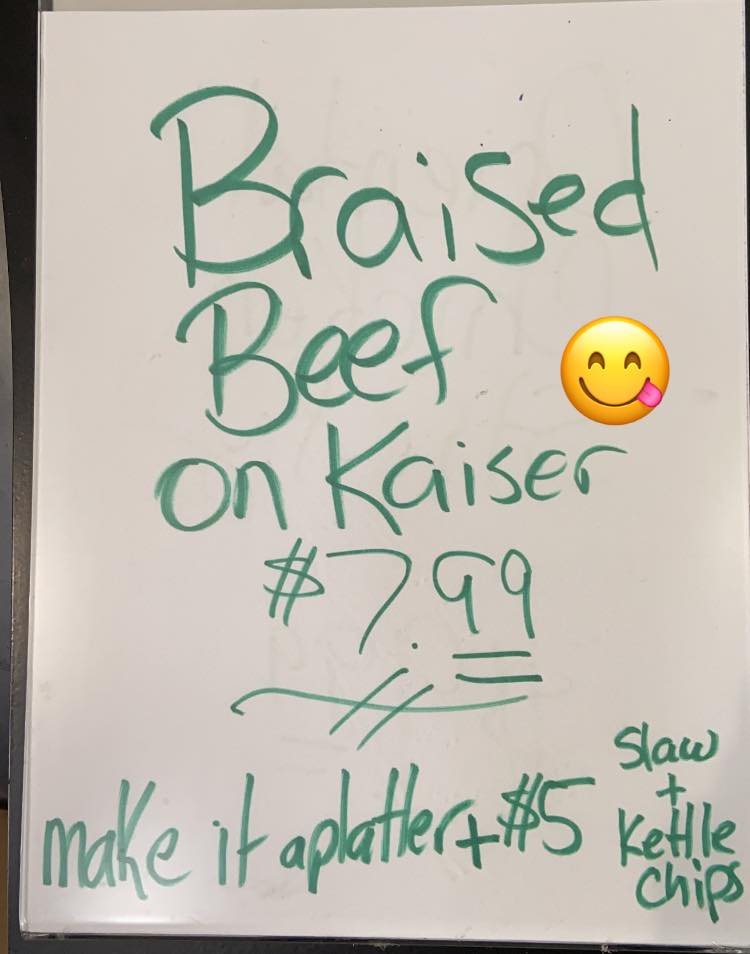 Braised
Beef
on Kaiser
$7.99
make it a platter + $5
Slaw
+
Kettle
Chips